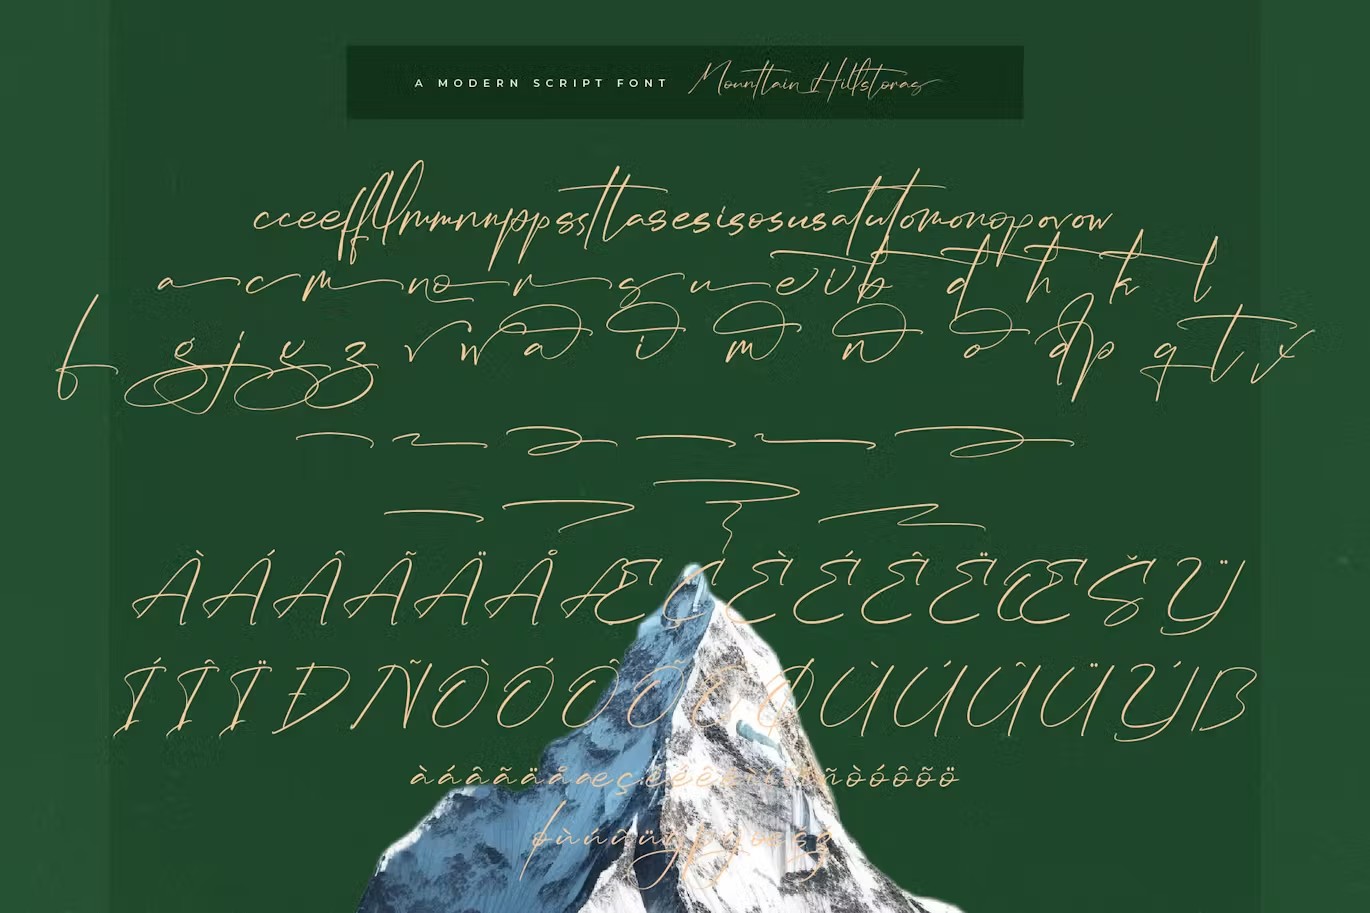 A MODERN SCRIPT FONT Mounttain Hillstoras
cceeffllmmnnppssttasesisosusatutomonopovow
a c m no r s u e v b d h k l
f g j y z r w a i m n o d p q t x
À Á Â Ã Ä Å Æ Ç È É Ê Ë Œ Š Ÿ
Í Î Ï Ð Ñ Ò Ó Ô Õ Ö Ø Ù Ú Û Ü Ý B
à á â ã ä å æ ç è é ê ñ ò ó ô õ ö
ù ú û ü